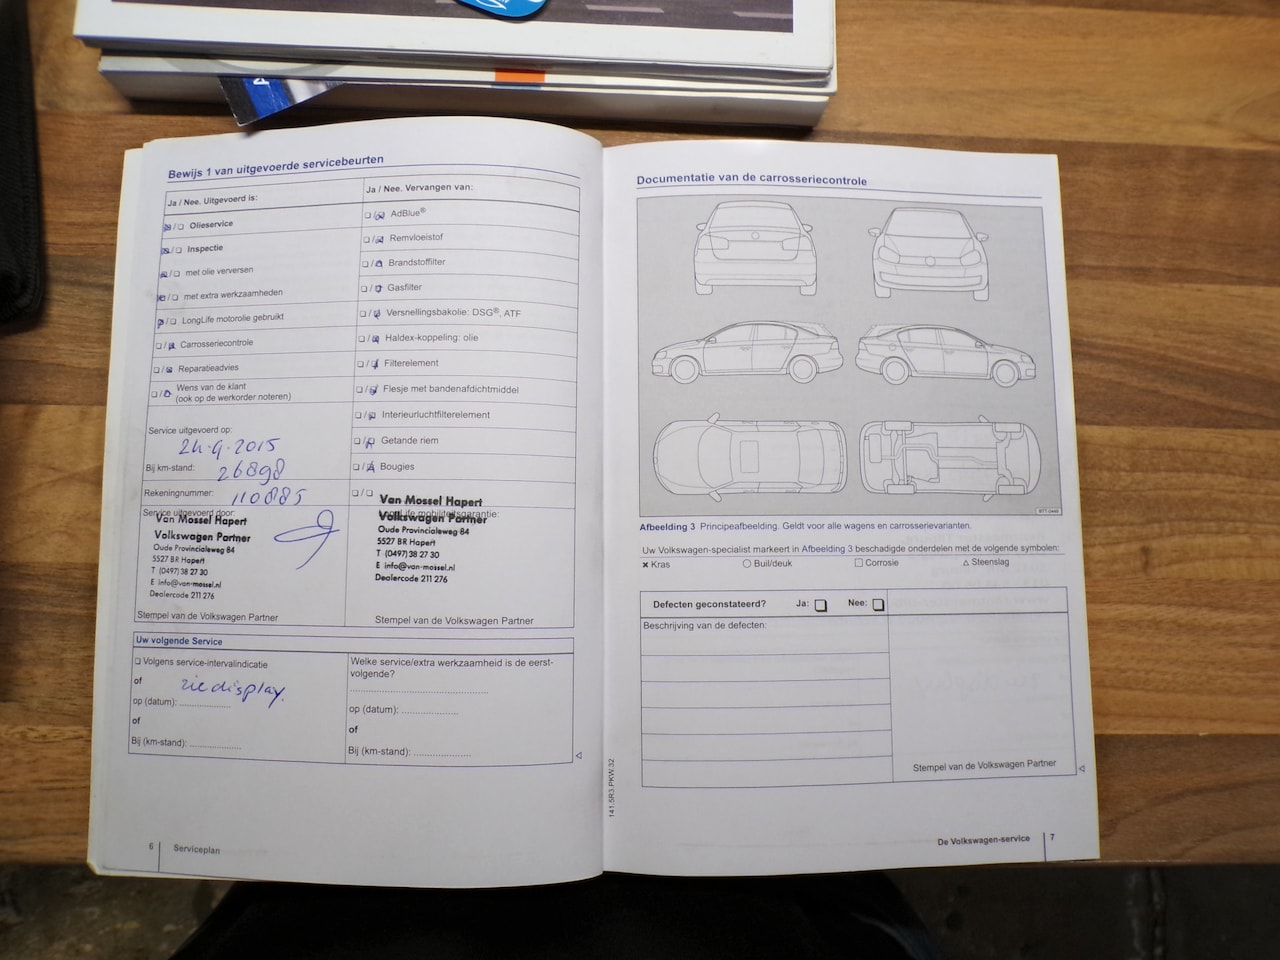 Bewijs 1 van uitgevoerde servicebeurten
Ja / Nee. Uitgevoerd is:
☒/☐ Olieservice
☒/☐ Inspectie
☒/☐ met olie verversen
☒/☐ met extra werkzaamheden
☒/☐ LongLife motorolie gebruikt
☐/☒ Carrosseriecontrole
☐/☒ Reparatieadvies
☐/☒ Wens van de klant
(ook op de werkorder noteren)
Service uitgevoerd op:
24-9-2015
Bij km-stand: 26898
Rekeningnummer: 110885
Service uitgevoerd door:
Van Mossel Hapert
Volkswagen Partner
Oude Provincialeweg 84
5527 BR Hapert
T (0497) 38 27 30
E info@van-mossel.nl
Dealercode 211 276
Stempel van de Volkswagen Partner
Ja / Nee. Vervangen van:
☐/☒ AdBlue®
☐/☒ Remvloeistof
☐/☒ Brandstoffilter
☐/☒ Gasfilter
☐/☒ Versnellingsbakolie: DSG®, ATF
☐/☒ Haldex-koppeling: olie
☐/☒ Filterelement
☐/☒ Flesje met bandenafdichtmiddel
☐/☒ Interieurluchtfilterelement
☐/☒ Getande riem
☐/☒ Bougies
☐/☐
LongLife mobiliteitsgarantie:
Van Mossel Hapert
Volkswagen Partner
Oude Provincialeweg 84
5527 BR Hapert
T (0497) 38 27 30
E info@van-mossel.nl
Dealercode 211 276
Stempel van de Volkswagen Partner
Uw volgende Service
☐ Volgens service-intervalindicatie
of zie display.
op (datum): ....................
of
Bij (km-stand): ....................
Welke service/extra werkzaamheid is de eerst-
volgende?
op (datum): ....................
of
Bij (km-stand): ....................
6 Serviceplan
Documentatie van de carrosseriecontrole
Afbeelding 3 Principeafbeelding. Geldt voor alle wagens en carrosserievarianten.
Uw Volkswagen-specialist markeert in Afbeelding 3 beschadigde onderdelen met de volgende symbolen:
✗ Kras ○ Buil/deuk □ Corrosie △ Steenslag
Defecten geconstateerd? Ja: ☐ Nee: ☐
Beschrijving van de defecten:
Stempel van de Volkswagen Partner
141.5R3.PKW.32
De Volkswagen-service 7